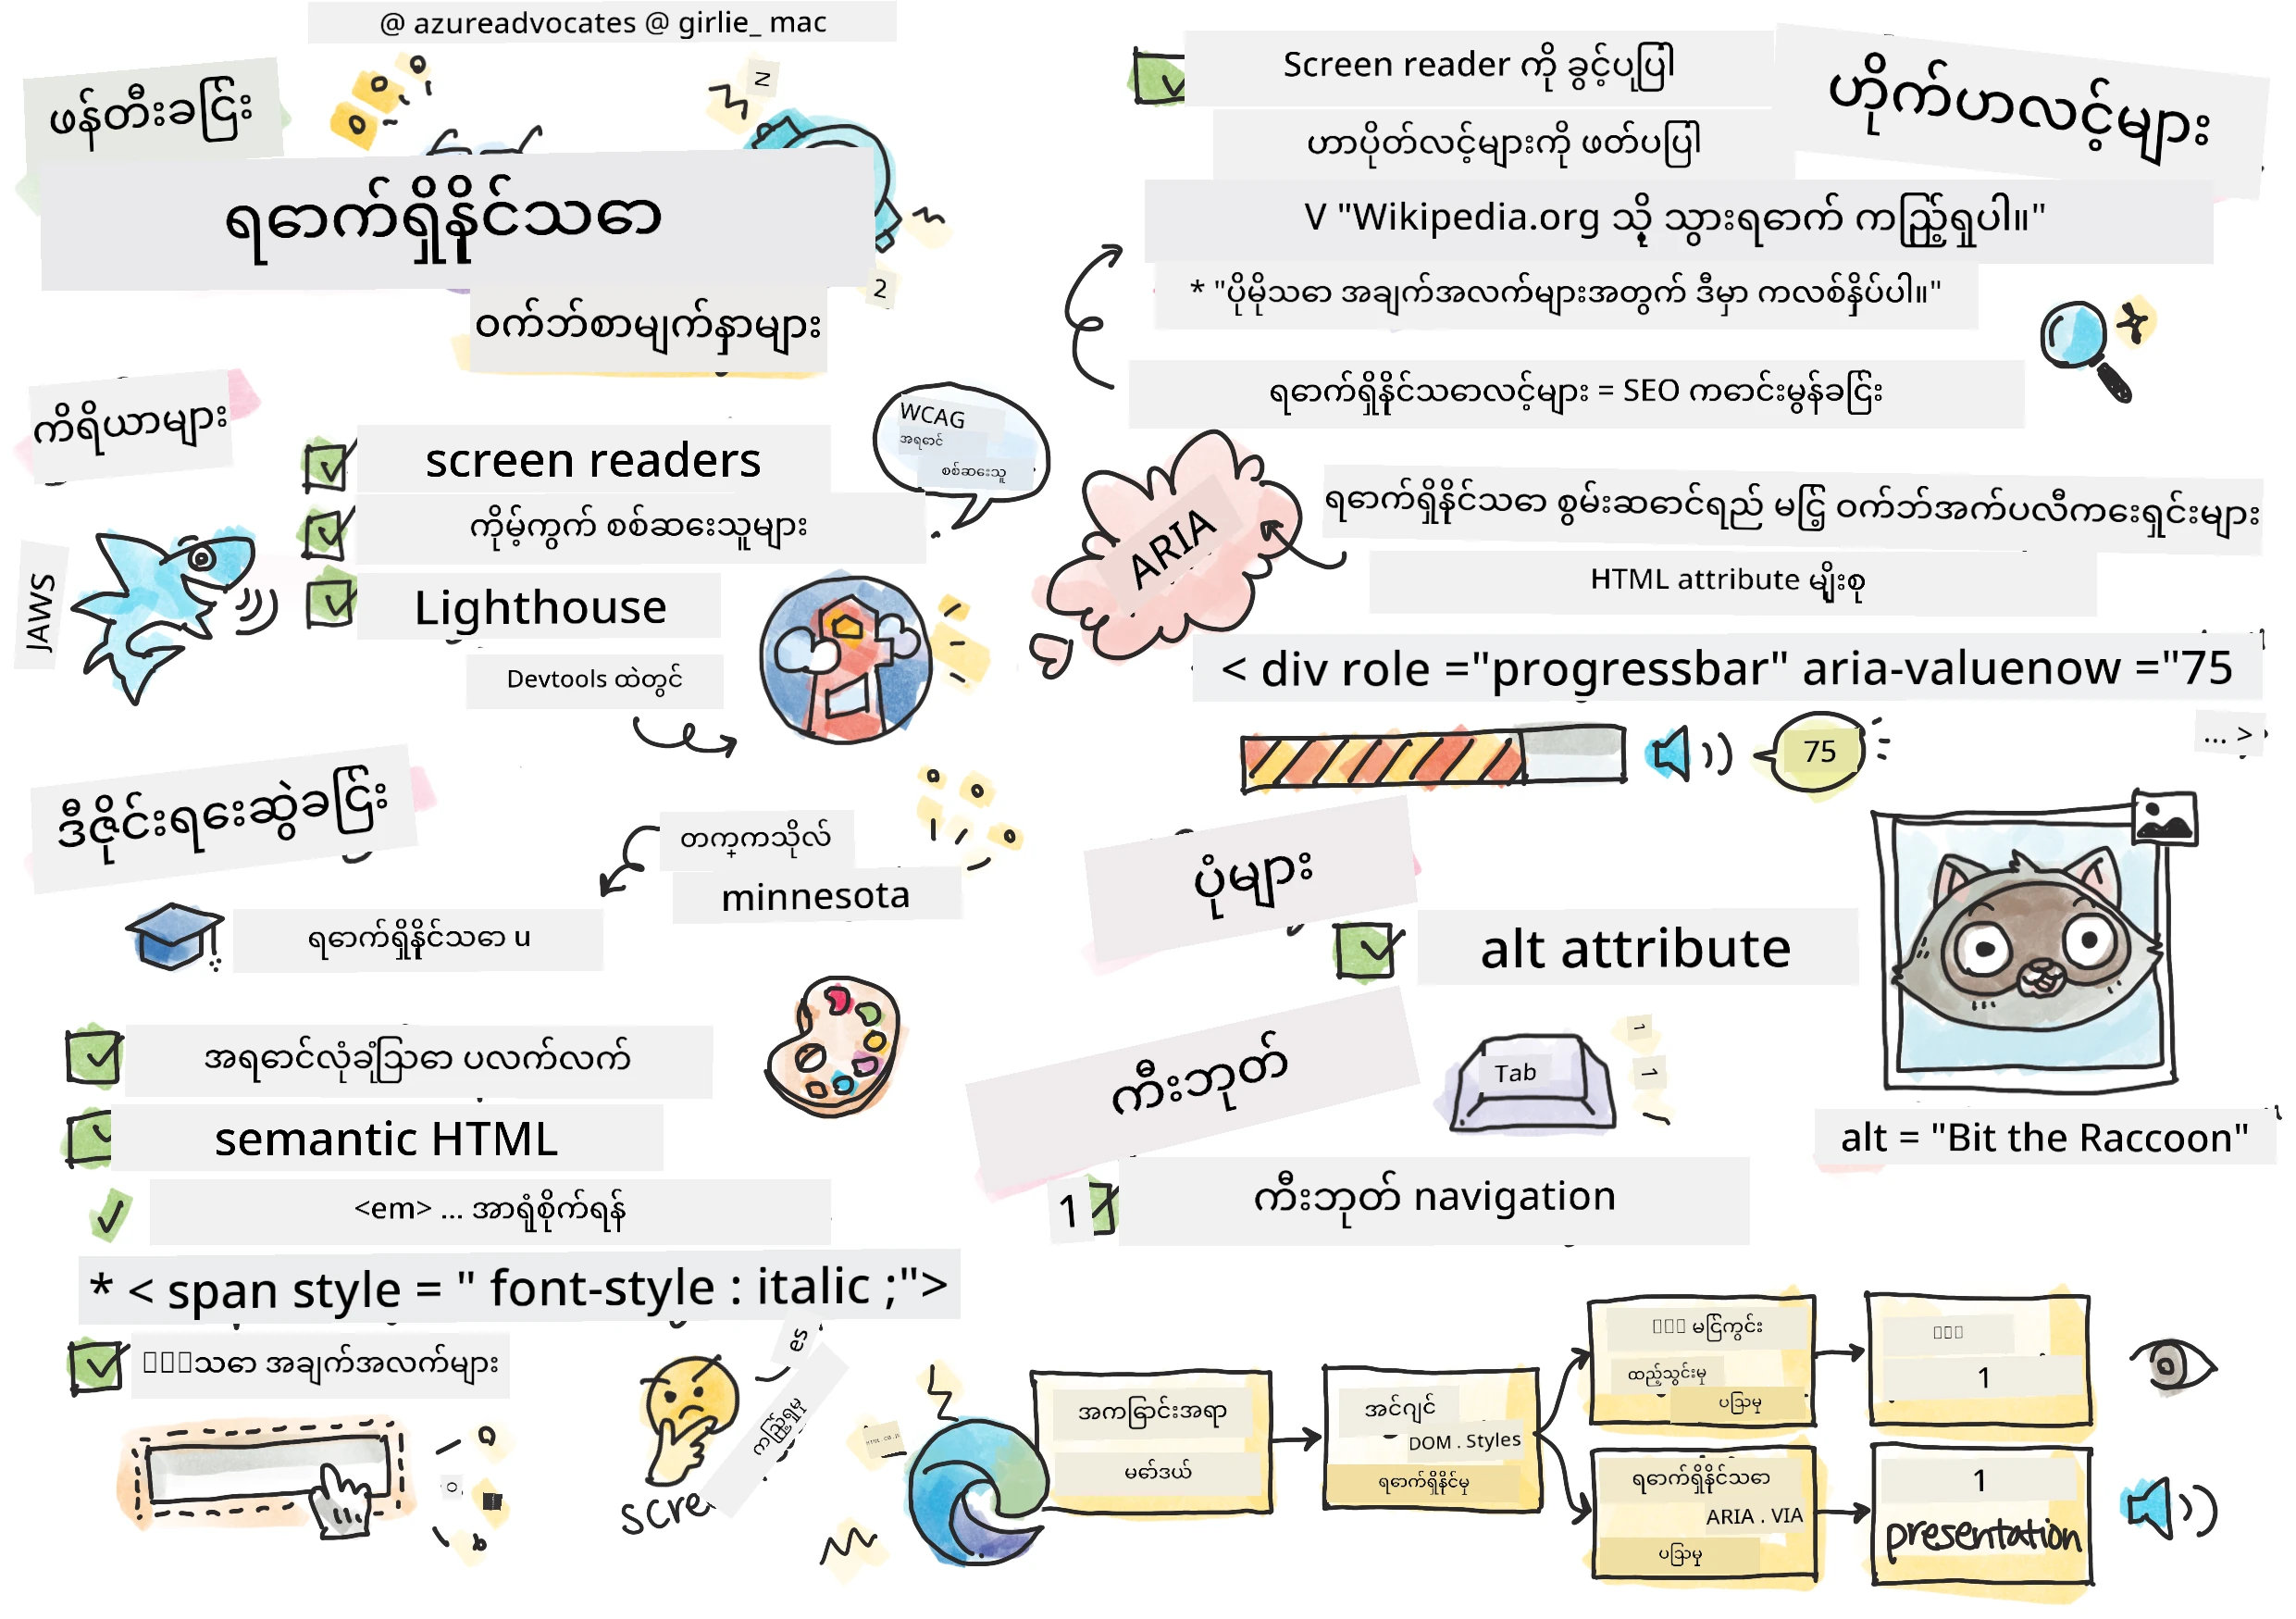 @ azureadvocates @ girlie_ mac
ဖန်တီးခြင်း
ရောက်ရှိနိုင်သော
ဝက်ဘ်စာမျက်နှာများ
N
2
ကိရိယာများ
screen readers
ကိုမ့်ကွက် စစ်ဆေးသူများ
Lighthouse
Devtools ထဲတွင်
JAWS
WCAG
အရောင်
စစ်ဆေးသူ
ဒီဇိုင်းရေးဆွဲခြင်း
တက္ကသိုလ်
minnesota
ရောက်ရှိနိုင်သော u
semantic HTML
<em> ... အာရုံစိုက်ရန်
* < span style = " font-style : italic ;">
သော အချက်အလက်များ
es
ကြည့်ရှုမှု
scre
Screen reader ကို ခွင့်ပြုပါ
ဟာပိုတ်လင့်များကို ဖတ်ပြပါ
ဟိုက်ဟလင့်များ
V "Wikipedia.org သို့ သွားရောက် ကြည့်ရှုပါ။"
* "ပိုမိုသော အချက်အလက်များအတွက် ဒီမှာ ကလစ်နှိပ်ပါ။"
ရောက်ရှိနိုင်သောလင့်များ = SEO ကောင်းမွန်ခြင်း
ARIA
ရောက်ရှိနိုင်သော စွမ်းဆောင်ရည် မြင့် ဝက်ဘ်အက်ပလီကေးရှင်းများ
HTML attribute မျိုးစု
< div role ="progressbar" aria-valuenow ="75
... >
75
ပုံများ
alt attribute
alt = "Bit the Raccoon"
ကီးဘုတ်
Tab
1
1
1
ကီးဘုတ် navigation
အကြောင်းအရာ
မော်ဒယ်
အင်ဂျင်
DOM . Styles
ရောက်ရှိနိုင်မှု
မြင်ကွင်း
ထည့်သွင်းမှု
ပြသမှု
1
ရောက်ရှိနိုင်သော
ARIA . VIA
ပြသမှု
1
presentation